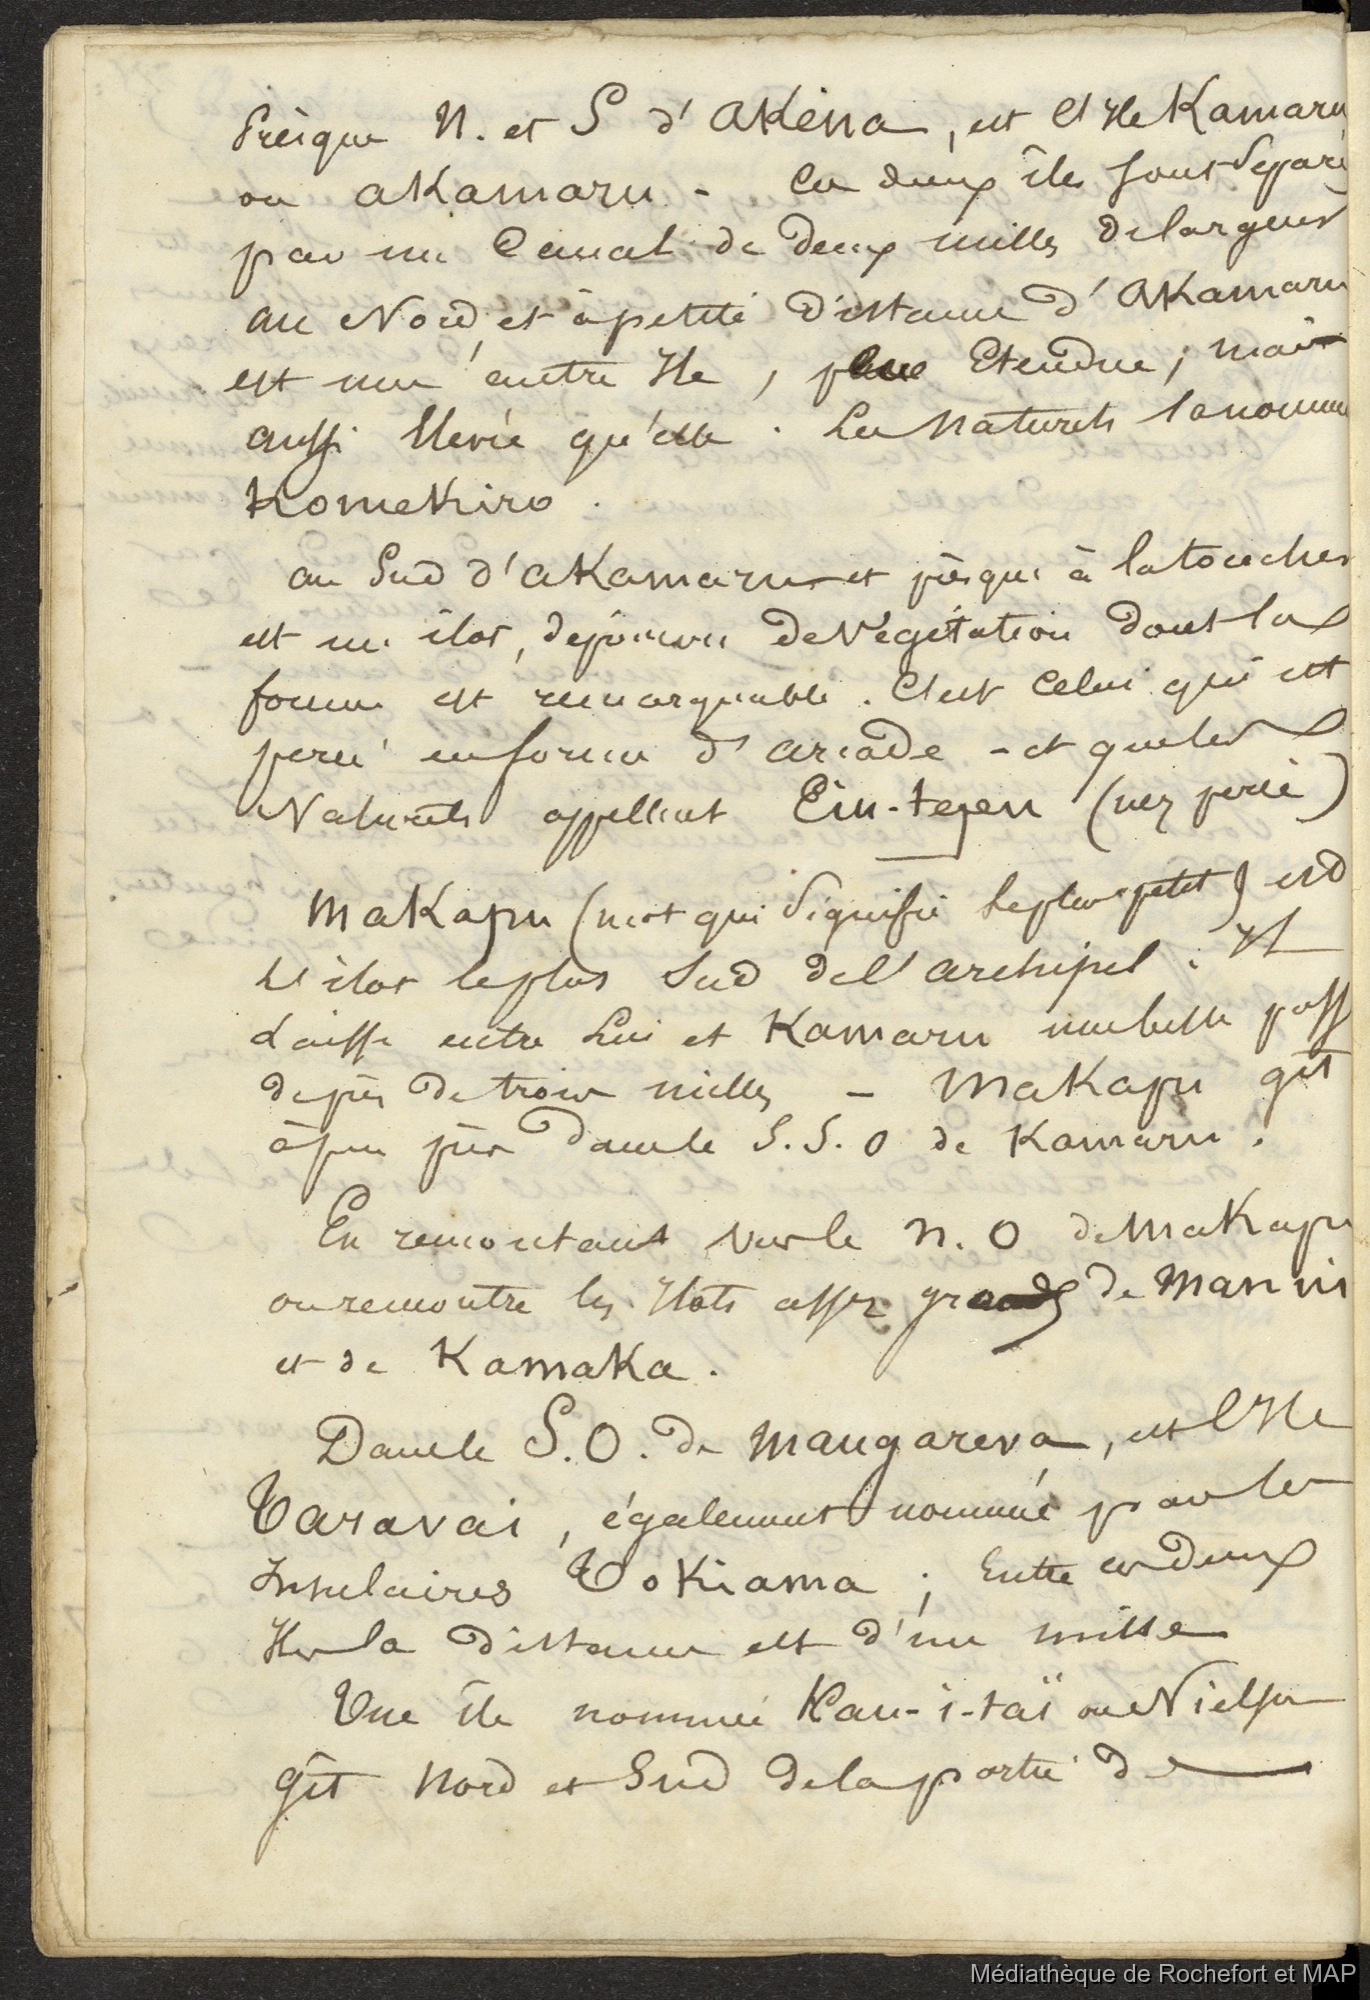 Prèsque N. et S d'Akéna, est l'Ile Kamaru
ou aKamaru - Ces deux îles sont séparé
par un Canal de deux milles de largeur
au Nord, et à petite distance d'AKamaru
est une autre Ile, plus Etendue; mais
aussi Elevée qu'elle. Les Naturels la nomme
KomeKiro.
au Sud d'aKamaru et près que à la toucher
est un ilot, dépourvu de Végétation dont la
forme est remarquable. C'est Celui qui est
percé en forme d'arcade - et que les
Naturels appellent Ein-tepen (nez percé)
MaKapu (mot qui signifie le plus petit) est
L'ilot le plus Sud de l'archipel. Il
Laisse entre Lui et Kamaru une belle pass
de près de trois milles - MaKapu gît
à peu près dans le S.S.O de Kamaru.
En remontant vers le N.O de MaKapu
on remontre les Ilots assez grands de Manui
et de KamaKa.
Dans le S.O. de Mangareva, est l'Ile
Taravai, également nommé par les
Insulaires ToKiama; Entre ces deux
Iles la distance est d'un mille
Une île nommée Kau-i-taï ou Nielson
gît Nord et Sud de la partie de
Médiathèque de Rochefort et MAP